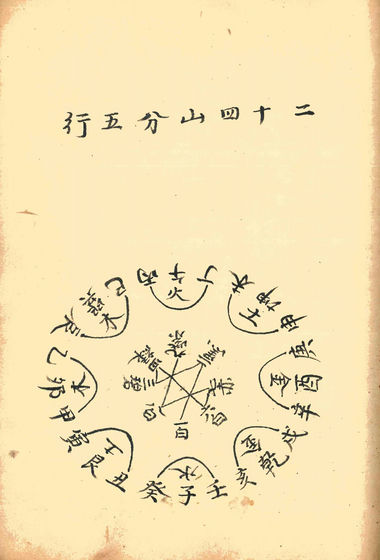 二十四山分五行
丙午丁
火
未坤申
土
庚酉辛
金
戌乾亥
金
壬子癸
水
丑艮寅
土
甲卯乙
木
辰巽巳
木
九紫
四綠
三碧